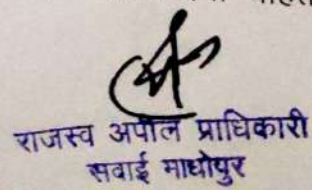 राजस्व अपील प्राधिकारी
सवाई माधोपुर